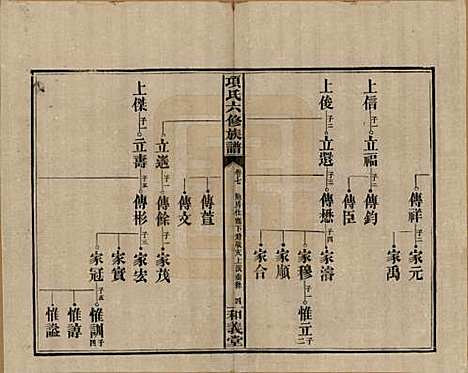 項氏六修族譜
卷七
四
和義堂
傳祥 子二
家元
家禹
上信 子二
立福 子二
傳鈞
傳臣
上俊 子二
立還 子二
傳懋 子四
家濤
家穆 子一
惟立 子二
家順
家合
立邁 子一
傳餘 子一
家茂
傳萱
傳文
上傑 子一
立壽 子一
傳彬 子三
家宏
家實
家冠 子三
惟訓 子四
惟諄
惟謚